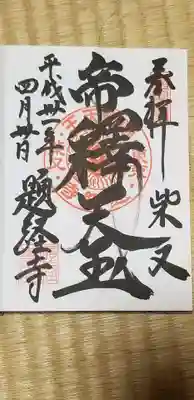 奉拝 柴又
帝釋天王
平成卅一年
四月廿日
題経寺